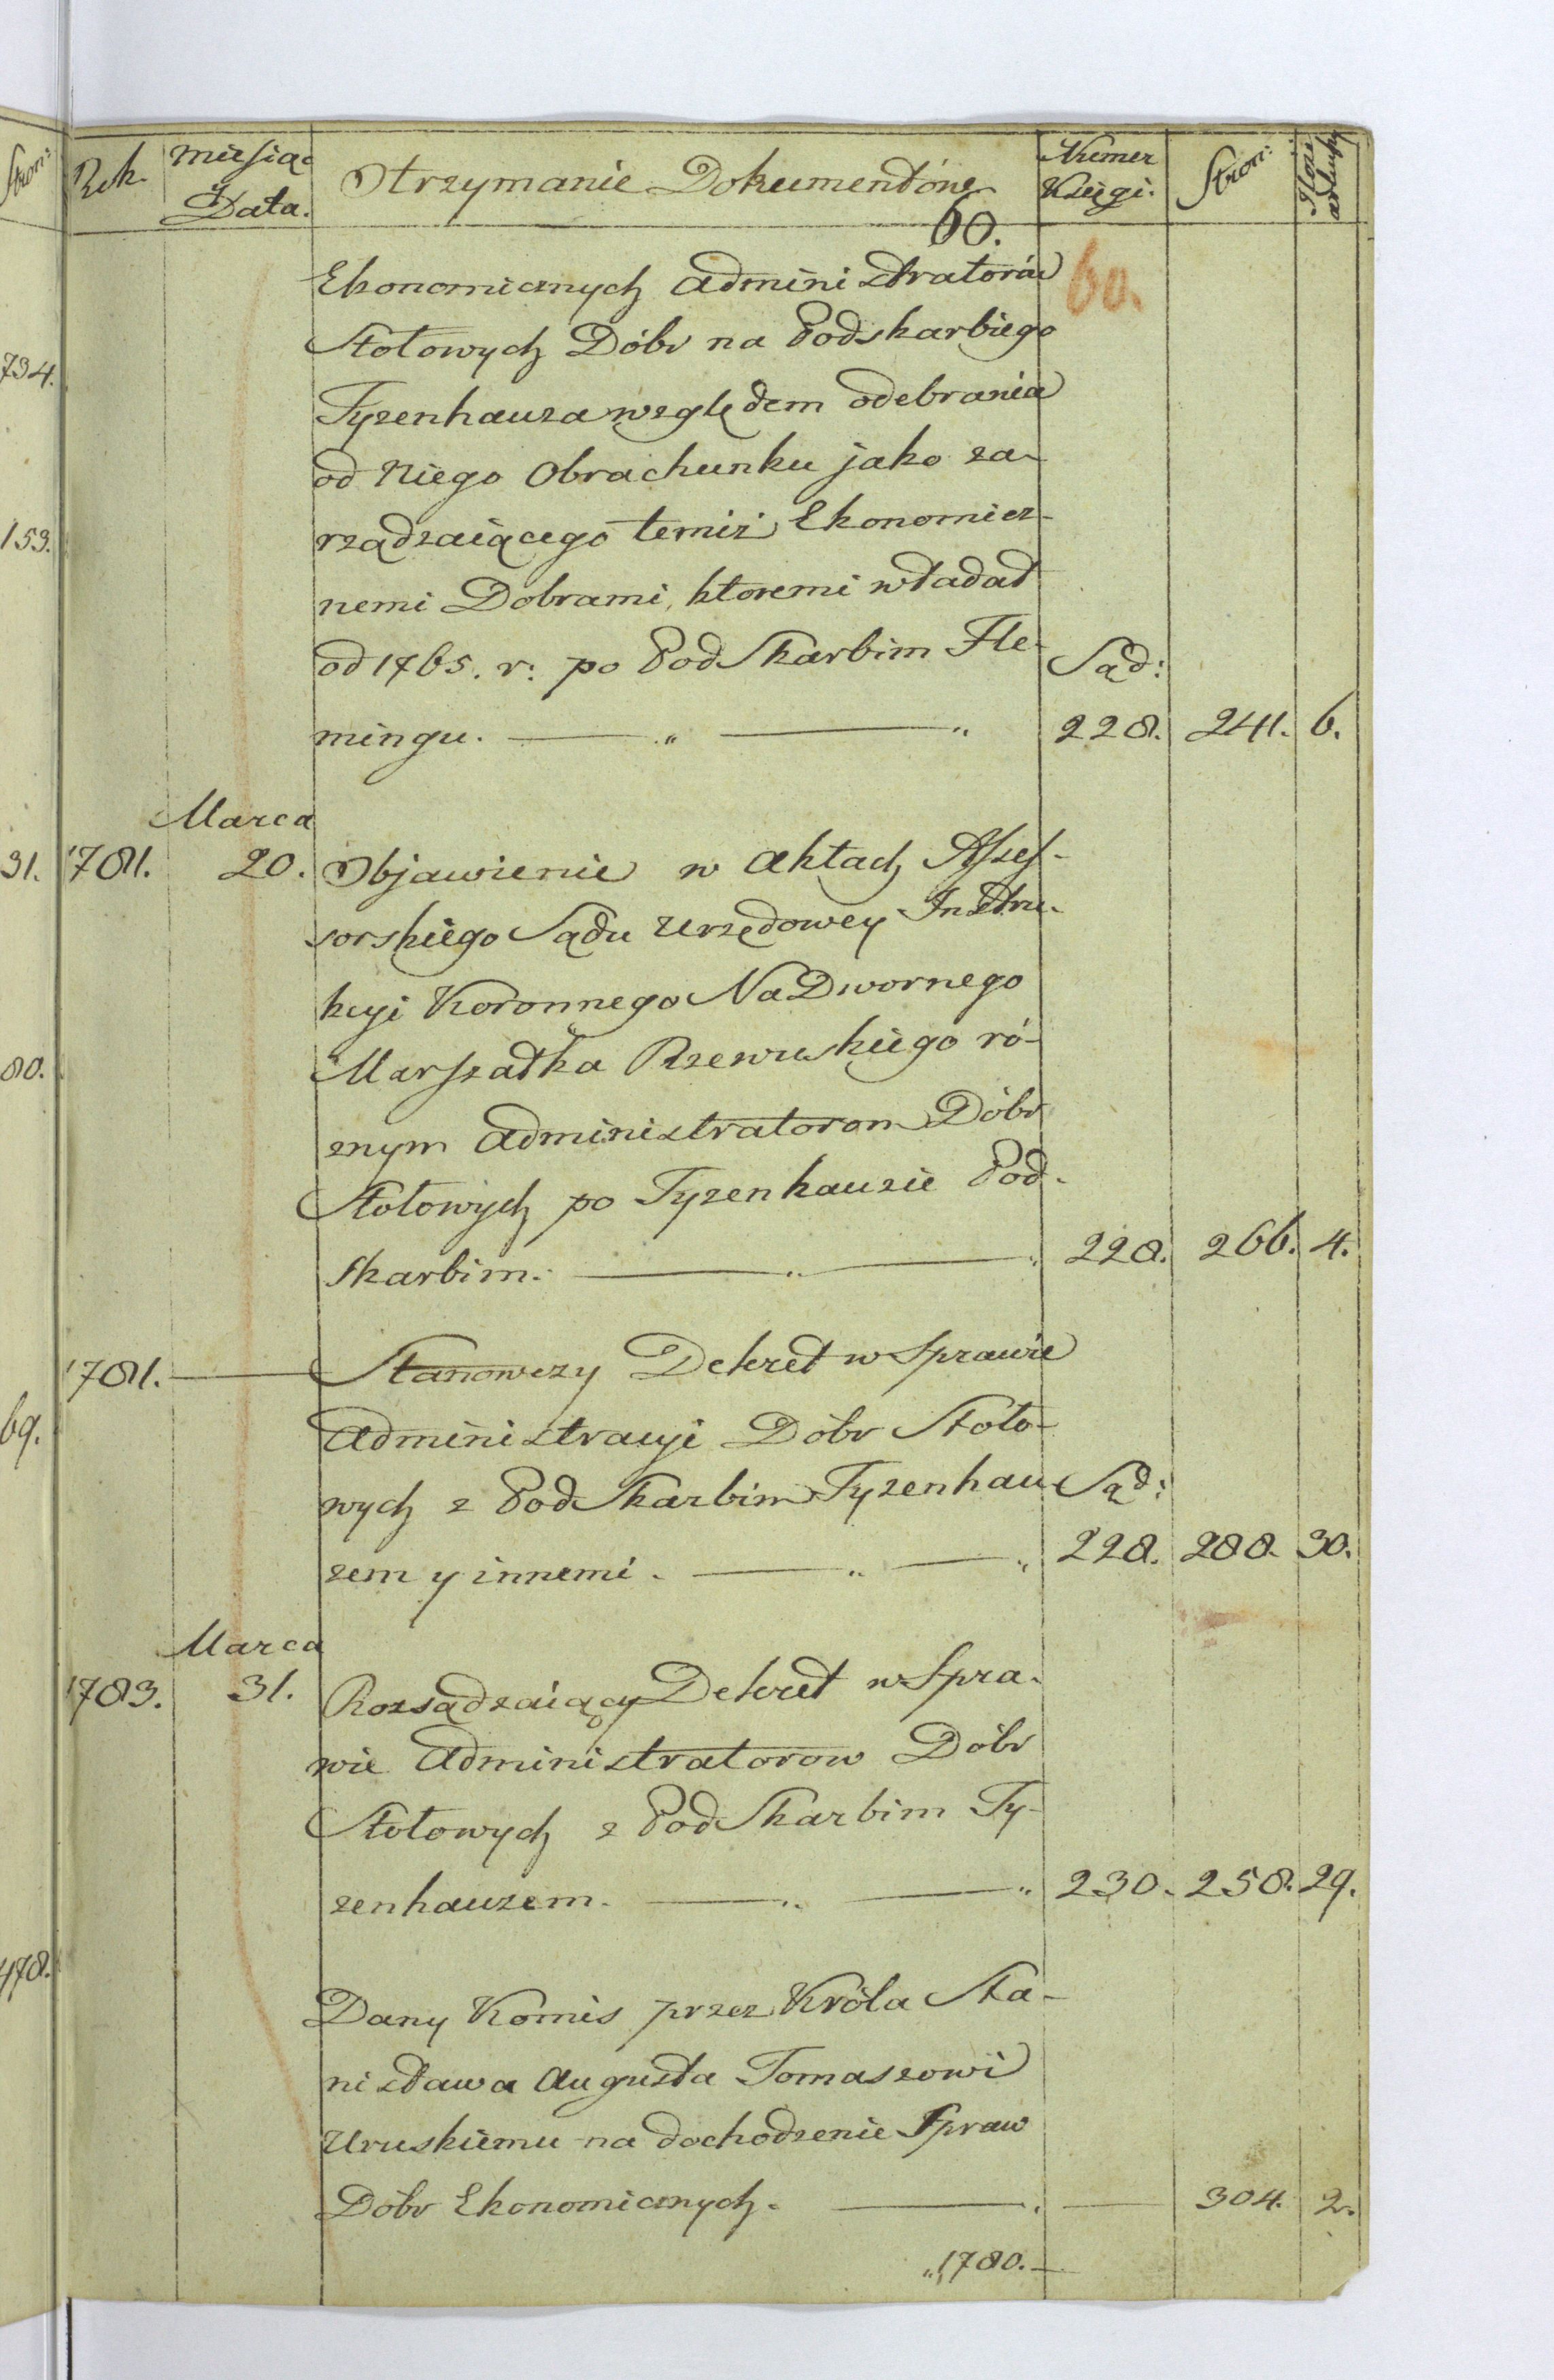 Stron:
734.
153.
31.
80.
69.
478.
Rok. Miesiąc Data. Otrzymanie Dokumentów Numer Księgi. Stron: Ilość
60.
60.
Ekonomicznych Administratorów
Stołowych Dóbr na Podskarbiego
Tyzenhauza względem odebrania
od Niego Obrachunku jako za-
rządzaiącego temiż Ekonomicz-
nemi Dobrami, ktoremi władał
od 1765. r: po PodSkarbim Fle- Sąd:
mingu. 228. 241. 6.
Marca
1781. 20. Objawienie w Aktach Asses-
sorskiego Sądu Urzędowey Instru-
kcyi Koronnego NaDwornego
Marszałka Rzewuskiego ró-
znym Administratorom Dóbr
Stołowych po Tyzenhauzie Pod-
Skarbim. 228. 266. 4.
1781. Stanowczy Dekret w Sprawie
Administracyi Dóbr Stoło-
wych z PodSkarbim Tyzenhau- Sąd:
zem y innemi. 228. 288. 30.
Marca
1783. 31. Rozsądzaiący Dekret w Spra-
wie Administratorow Dóbr
Stołowych z PodSkarbim Ty-
zenhauzem. 230. 258. 29.
Dany Komis przez Króla Sta-
nisława Augusta Tomaszowi
Uruskiemu na dochodzenie Spraw
Dóbr Ekonomicznych. 304. 2.
„1780.